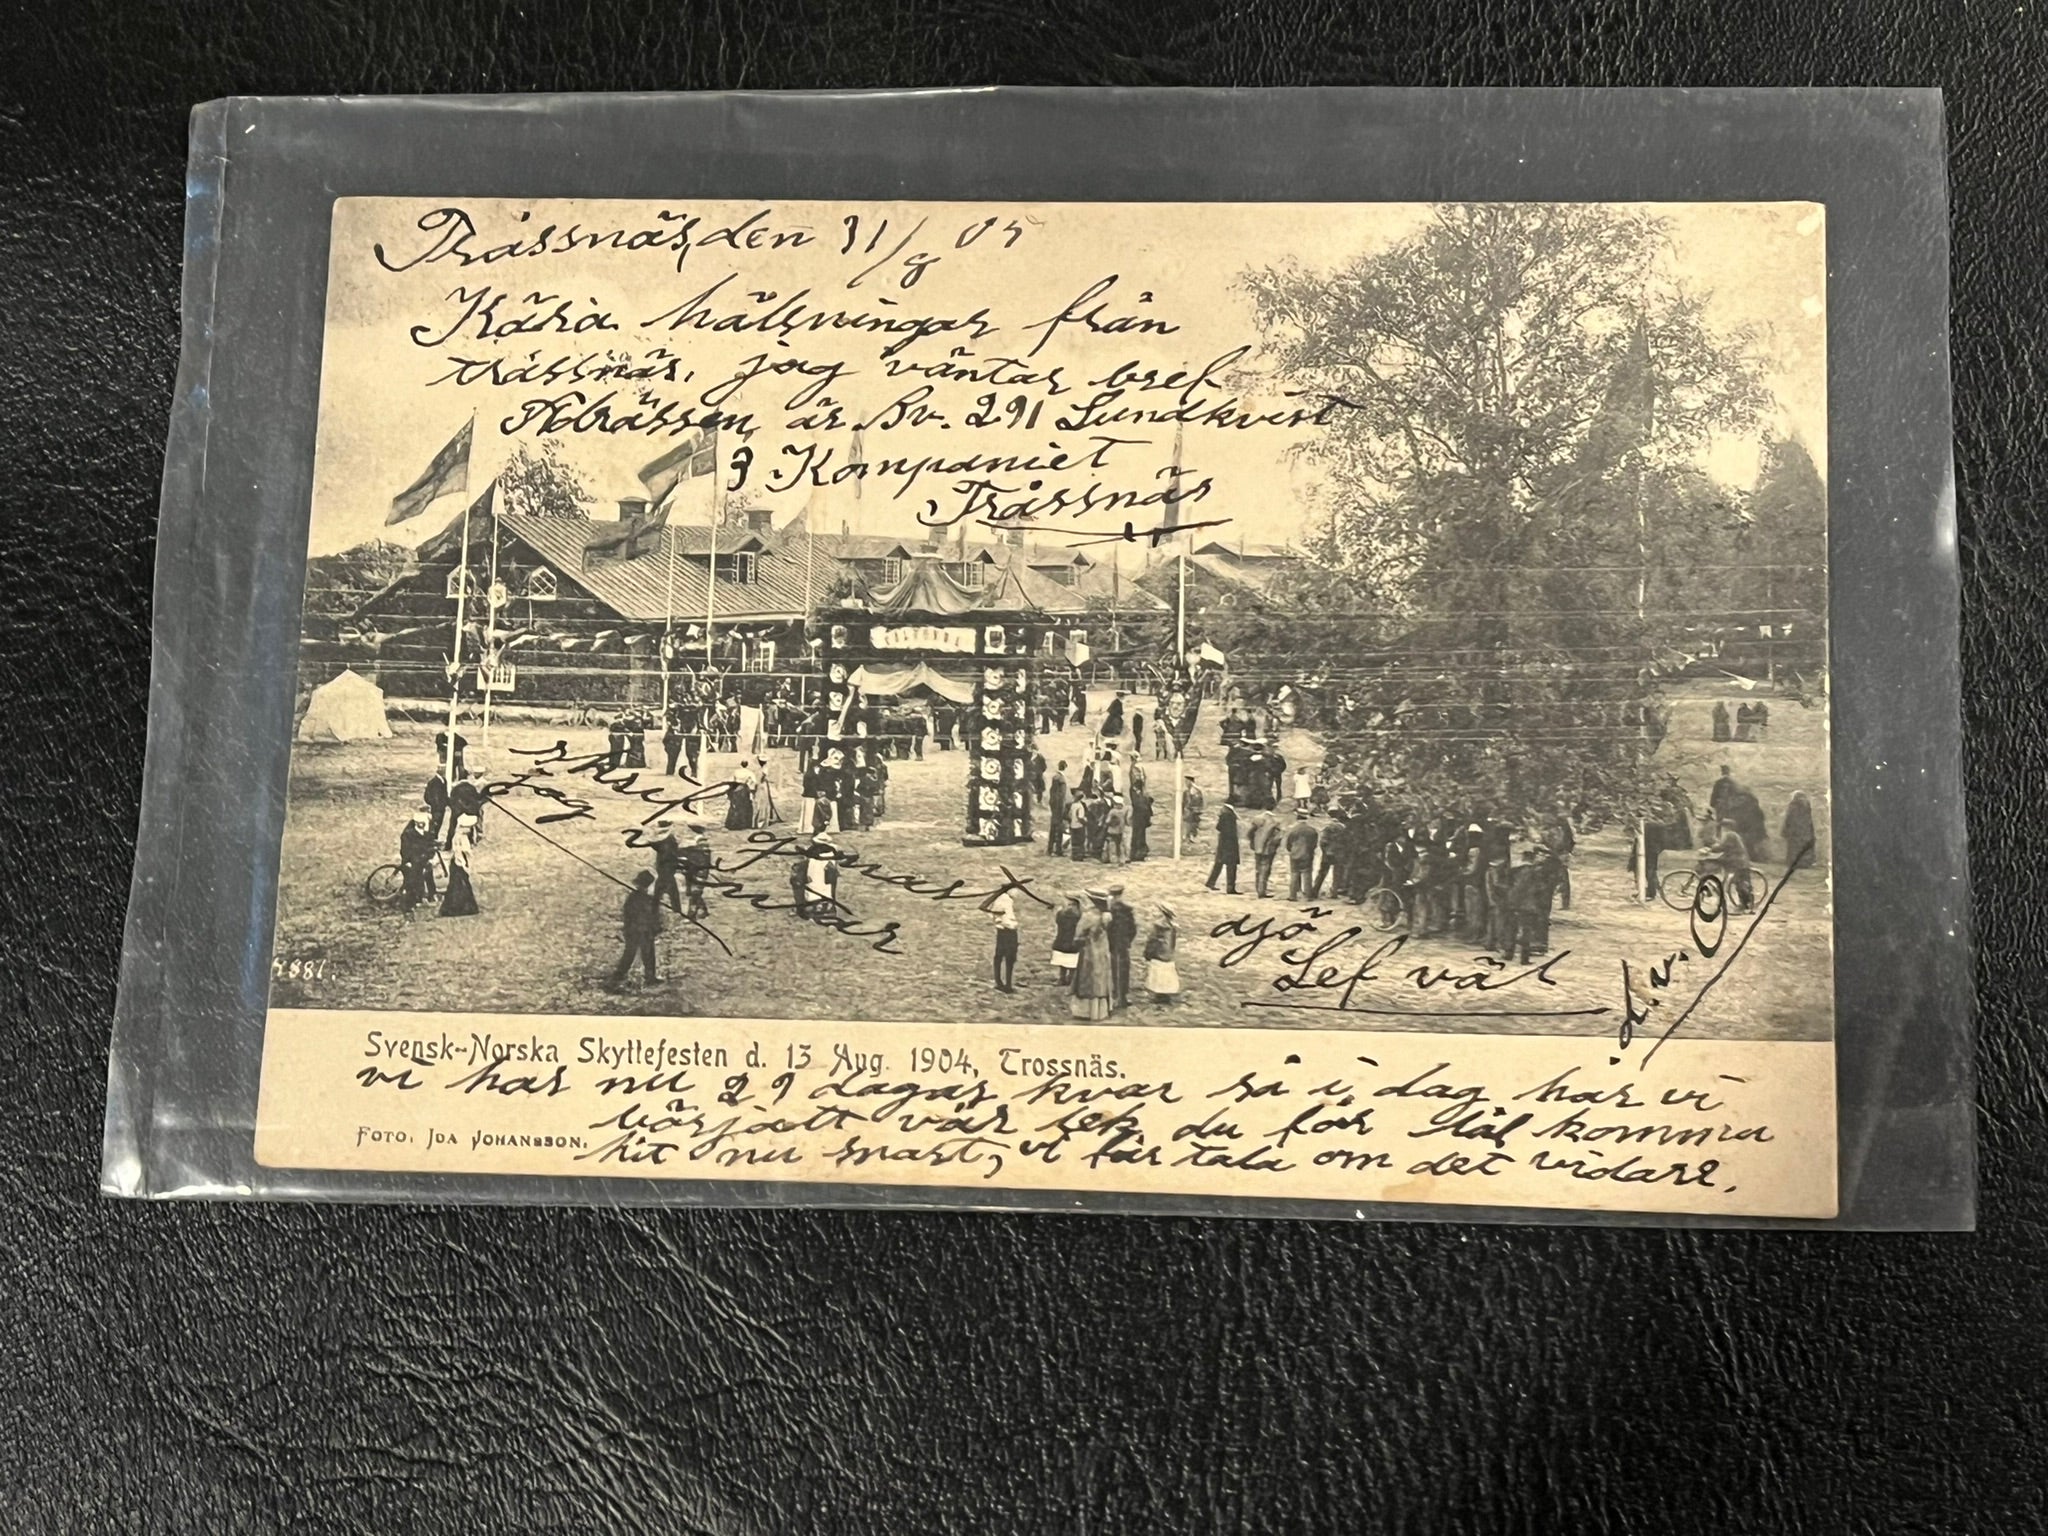 Tråssnäs, den 31/8 05
Kära hälsningar från
tråssnäs. jag väntar bref
Adrässen är Bv. 291 Lundkvist
3 Kompaniet
Tråssnäs
skrif genast
jag väntar
ajö
Lef väl
d. v. O
7881.
Svensk-Norska Skyttefesten d. 13 Aug. 1904, Trossnäs.
vi har nu 29 dagar kvar så i dag har vi
börjatt vår du får lål komma
hit nu snart, vi får tala om det vidare.
Foto. Ida Johansson.